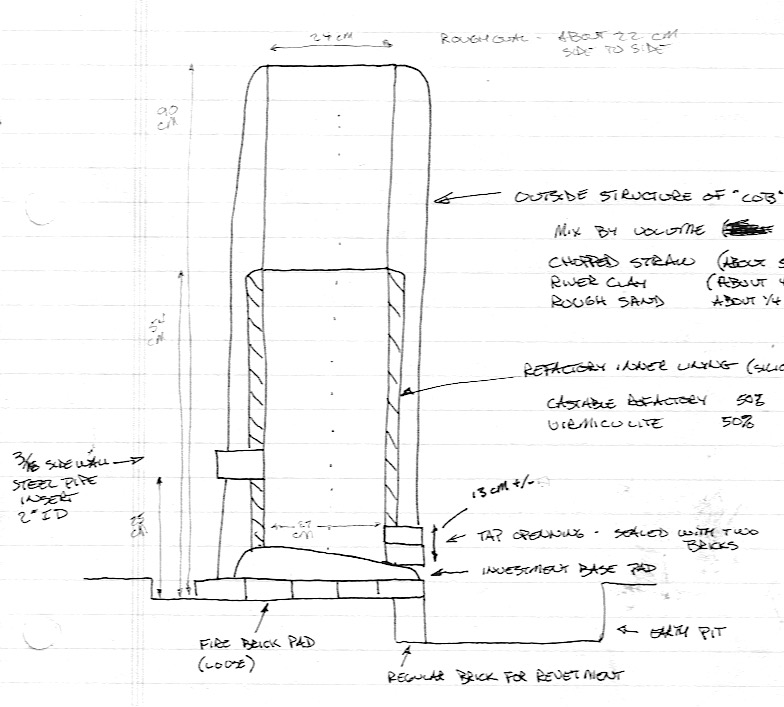 24 cm
ROUGH OVAL - ABOUT 22 CM
SIDE TO SIDE
90
CM
OUTSIDE STRUCTURE OF "COB"
MIX BY VOLUME
CHOPPED STRAW (ABOUT
RIVER CLAY (ABOUT
ROUGH SAND ABOUT 1/4
CM
REFACTORY INNER LINING
CASTABLE REFACTORY 50%
VIRMICULITE 50%
3/16 SIDE WALL
STEEL PIPE
INSERT
2" ID
25
CM
13 CM +/-
CM
TAP OPENING - SEALED WITH TWO
BRICKS
INVESTMENT BASE PAD
FIRE BRICK PAD
(LOOSE)
EARTH PIT
REGULAR BRICK FOR REVETMENT